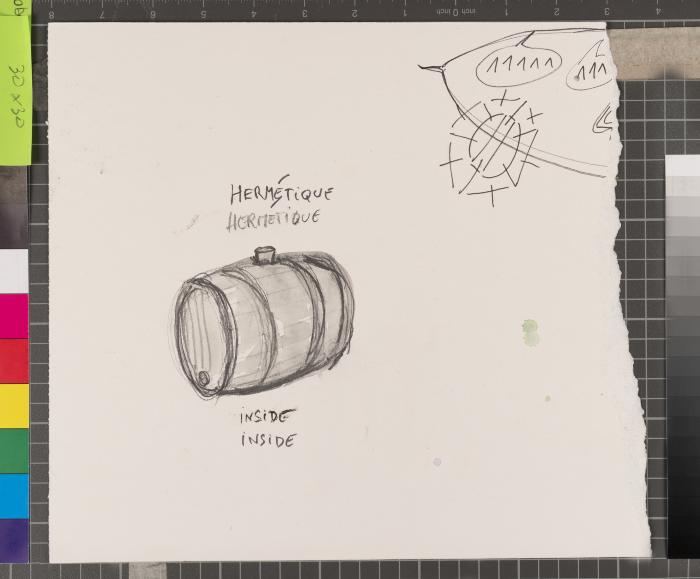 HERMÉTIQUE
HERMETIQUE
INSIDE
INSIDE
30 x 30
8 7 6 5 4 3 2 1 inch 0 inch 1 2 3 4